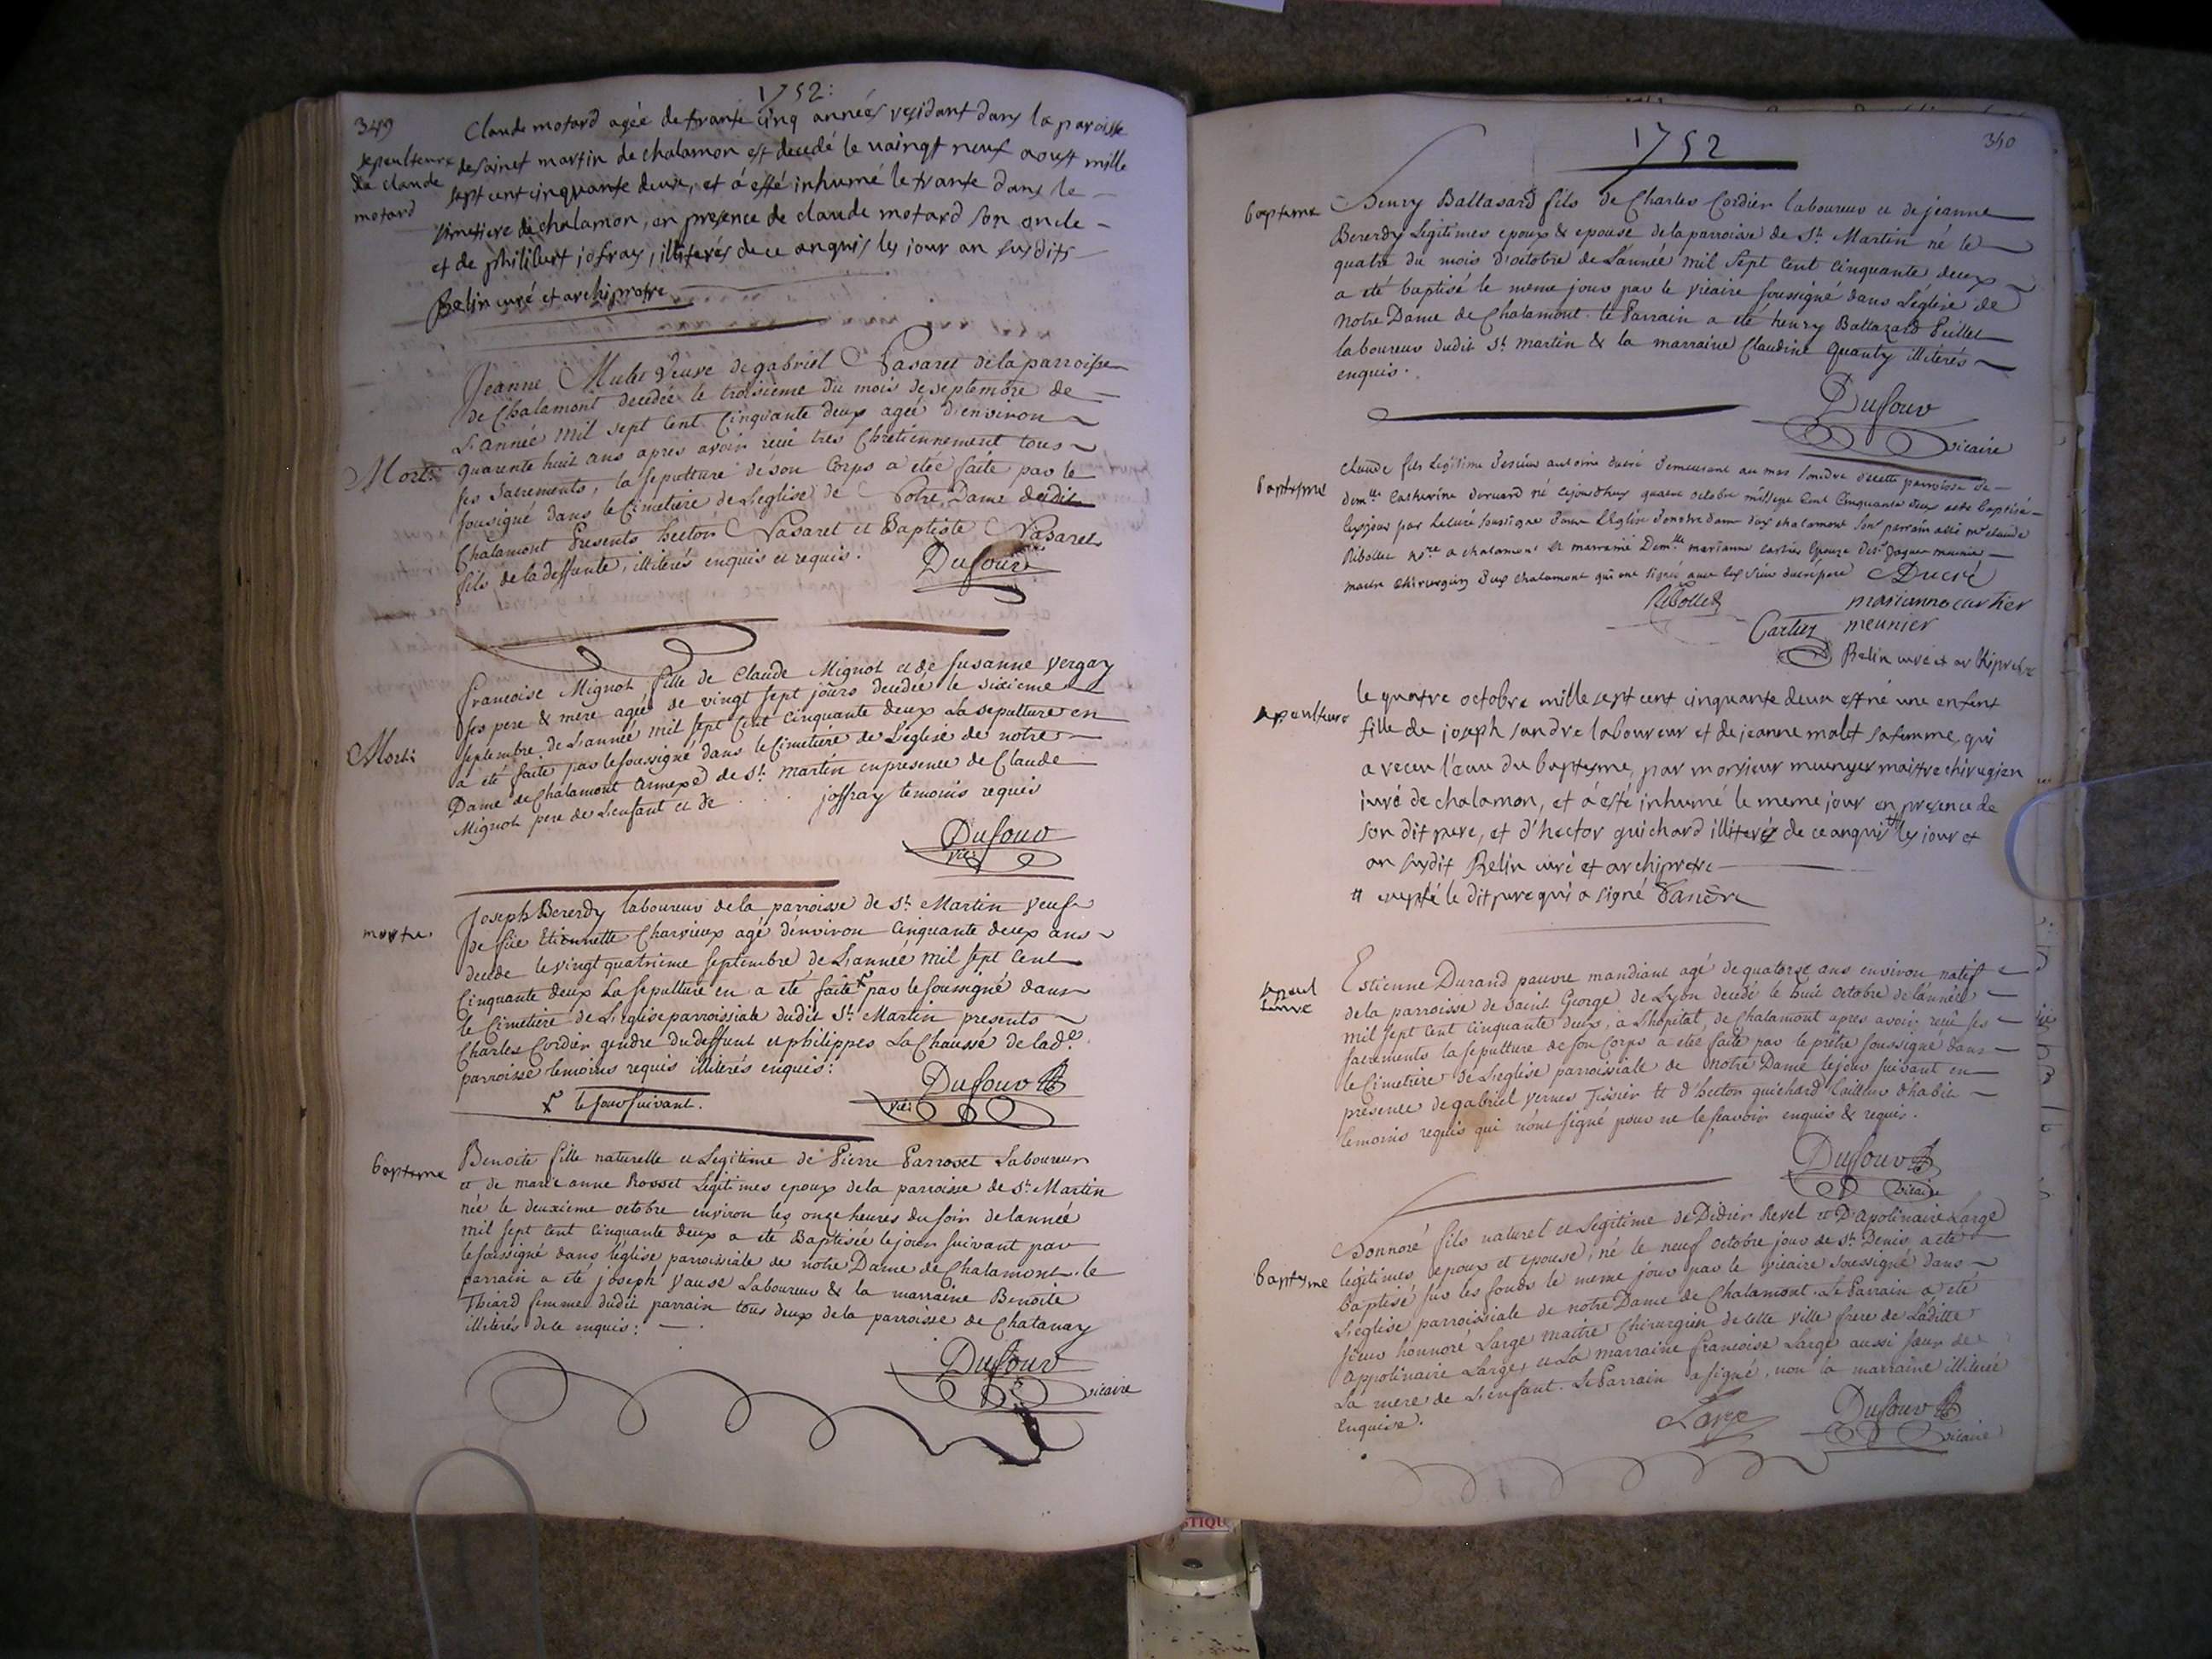 1752:
349
Claude motard agée de trante cinq années residant dans la paroisse
sepeulteure
de claude
motard
de sainct martin de chalamon est decedé le vaingt neuf aoust mille
sept cent cinquante deux, et a esté inhumé le trante dans le
simetiere de chalamon, en presence de claude motard son oncle
et de philibert jofray, illiterés de ce anquis les jour an susdits
Belin curé et archipretre
Jeanne Mulet veuve de gabriel Vasaret de la parroisse
de Chalamont decedée le troisieme du mois de septembre de
L'année mil sept cent Cinquante deux ageé d'environ
Mort:
quarente huit ans apres avoir reçu tres Chretiennement tous
ses Sacrements, la sepulture de son Corps a eteé faite par le
sousigné dans le Cimetiere de L'eglise de Notre Dame dudit
Chalamont Presents hector Vasaret et Baptiste Vasaret
fils de la deffunte, illiterés enquis et requis.
Dufour
francoise Mignot fille de Claude Mignot et de susanne vergay
ses pere & mere ageé de vingt sept jours decedeé le sixieme
septembre de L'année mil sept Cent Cinquante deux La sepulture en
Mort:
a eté faite par le soussigné dans le Cimetiere de L'eglise de notre
Dame de Chalamont annexe de St. Martin en presence de Claude
Mignot pere de L'enfant et de . . . joffray temoins requis
Dufour
vic:
Joseph Bererdy laboureur de la parroisse de St. Martin veuf
mortu.
de füe Etiennette Charvieux agé d'environ Cinquante deux ans
decede le vingt quatrieme septembre de L'année mil sept Cent
Cinquante deux La sepulture en a eté faite par le soussigné dans
le Cimetiere de L'eglise parroissiale dudit St. Martin presents
Charles Cordier gendre du deffunt et philippes La Chausse de lade.
parroisse temoins requis illiterés enquis:
le jour suivant.
Dufour
vic:
bapteme
Benoite fille naturelle et Legitime de Pierre Parroset Laboureur
et de marie anne Rosset Legitimes epoux de la parroisse de St. Martin
née le deuxieme octobre environ les onze heures du soir de lannée
mil sept Cent Cinquante deux a eté Baptisée le jour suivant par
le soussigné dans l'eglise parroissiale de notre Dame de Chalamont. le
parrain a eté joseph vause Laboureur & la marraine Benoite
Thiard femme dudit parrain tous deux de la parroisse de Chatanay
illiterés de ce enquis:
Dufour
vicaire
1752
340
bapteme
Henry Baltasard fils de Charles Cordier laboureur et de jeanne
Bererdy Legitimes epoux & epouse de la parroisse de St. Martin né le
quatre du mois d'octobre de L'année mil sept Cent Cinquante deux
a eté baptisé le meme jour par le vicaire soussigné dans L'eglise de
Notre Dame de Chalamont. le Parrain a eté henry Baltazard Peillet
laboureur dudit St. Martin & la marraine Claudine Quanty illiterés
enquis.
Dufour
vicaire
baptesme
Claude fils Legitime de sieur antoine ducré demeurant au mas de cette parroisse de
demlle Catherine né cejourdhuy quatre octobre mil sept Cent Cinquante deux a este baptisé
par le curé soussigne dans L'Eglise de nostre dame dux chalamont son parrain a esté mr claude
Ribollet nre a chalamont et marraine Demlle marianne cartier Epouze de sr. jaque meunier
maitre chirurgien dux chalamont qui ont signé avec led sieur ducré pere Ducré
Ribollet
marianne cartier
Cartier meunier
Belin curé et archipretre
sepeulteure
le quatre octobre mille sept cent cinquante deux est né une enfant
fille de joseph sandre laboureur et de jeanne malet sa femme, qui
a receu l'eau du baptesme, par monsieur meunyer maitre chirugien
juré de chalamon, et a esté inhumé le meme jour en presence de
son dit pere, et d'hector guichard illiterés de ce anquis les jour et
an susdit Belin curé et archipretre
# excepté le dit pere qui a signé Sandre
sepeul
teure
Estienne Durand pauvre mandiant agé de quatorze ans environ natif
de la parroisse de Saint George de Lyon decedé le huit octobre de l'année
mil sept Cent Cinquante deux, a L'hopital, de Chalamont apres avoir reçu ses
sacrements la sepulture de son Corps a eteé faite par le prêtre soussigné dans
le Cimetiere de L'eglise parroissiale de Notre Dame le jour suivant en
presence de gabriel vernes Tissier et d'hector guichard tailleur d'habit
temoins requis qui n'ont signé pour ne le sçavoir enquis & requis.
Dufour
vicaire
baptesme
honnoré fils naturel et Legitime de Didier Revel et D'apolinaire Large
legitimes epoux et epouse, né le neuf octobre jour de St. Denis a eté
baptisé sur les fonds le meme jour par le vicaire soussigné dans
L'eglise parroissiale de notre Dame de Chalamont. Le Parrain a eté
sieur honnoré Large maitre Chirurgien de cette ville frere de Laditte
appolinaire Large, et La marraine francoise Large aussi sœur de
la mere de L'enfant. Le Parrain a signé, non la marraine illiterée
Enquise.
Large
Dufour
vicaire